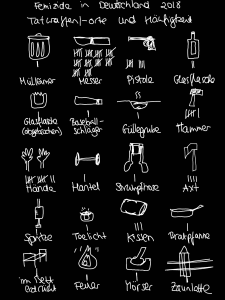 Femizide in Deutschland 2018
Tatwaffen/-orte und Häufigkeit
Mülltonne Messer Pistole Glasflasche
Glasflasche Baseball- Güllegrube Hammer
(abgebrochen) schläger
Hände Hantel Strumpfhose Axt
Spritze Teelicht Kissen Bratpfanne
im Bett Feuer Mörser Zaunlatte